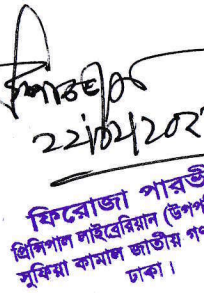 22/02/202
ফিরোজা পারভী
প্রিন্সিপাল লাইব্রেরিয়ান (উপপ
সুফিয়া কামাল জাতীয় গণ
ঢাকা।